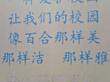 让我们的校园
像百合那样美
那样洁 那样雅